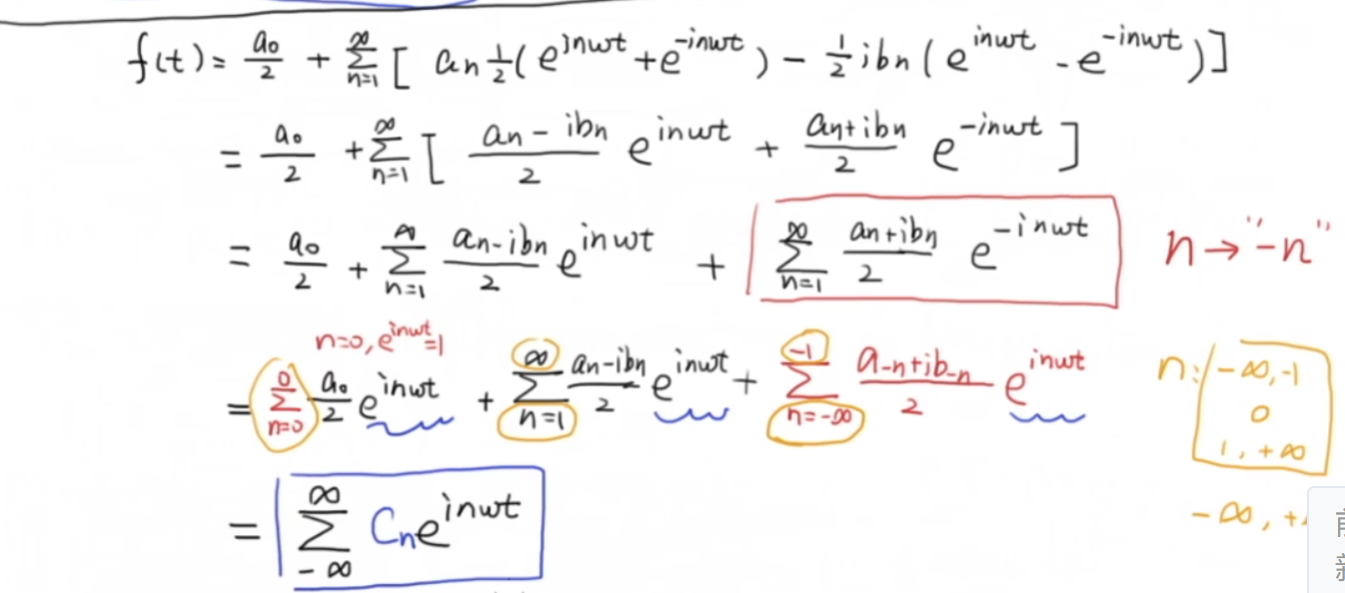 f(t) = a₀/2 + ∑_{n=1}^{∞} [ aₙ 1/2 ( e^{inwt} + e^{-inwt} ) - 1/2 i bₙ ( e^{inwt} - e^{-inwt} ) ]
= a₀/2 + ∑_{n=1}^{∞} [ (aₙ - ibₙ)/2 e^{inwt} + (aₙ + ibₙ)/2 e^{-inwt} ]
= a₀/2 + ∑_{n=1}^{∞} (aₙ - ibₙ)/2 e^{inwt} + ∑_{n=1}^{∞} (aₙ + ibₙ)/2 e^{-inwt} n → "-n"
n=0, e^{inwt}=1
= ∑_{n=0}^{0} a₀/2 e^{inwt} + ∑_{n=1}^{∞} (aₙ - ibₙ)/2 e^{inwt} + ∑_{n=-∞}^{-1} (a₋ₙ + ib₋ₙ)/2 e^{inwt}
n: -∞, -1
0
1, +∞
-∞, +
= ∑_{-∞}^{∞} Cₙ e^{inwt}